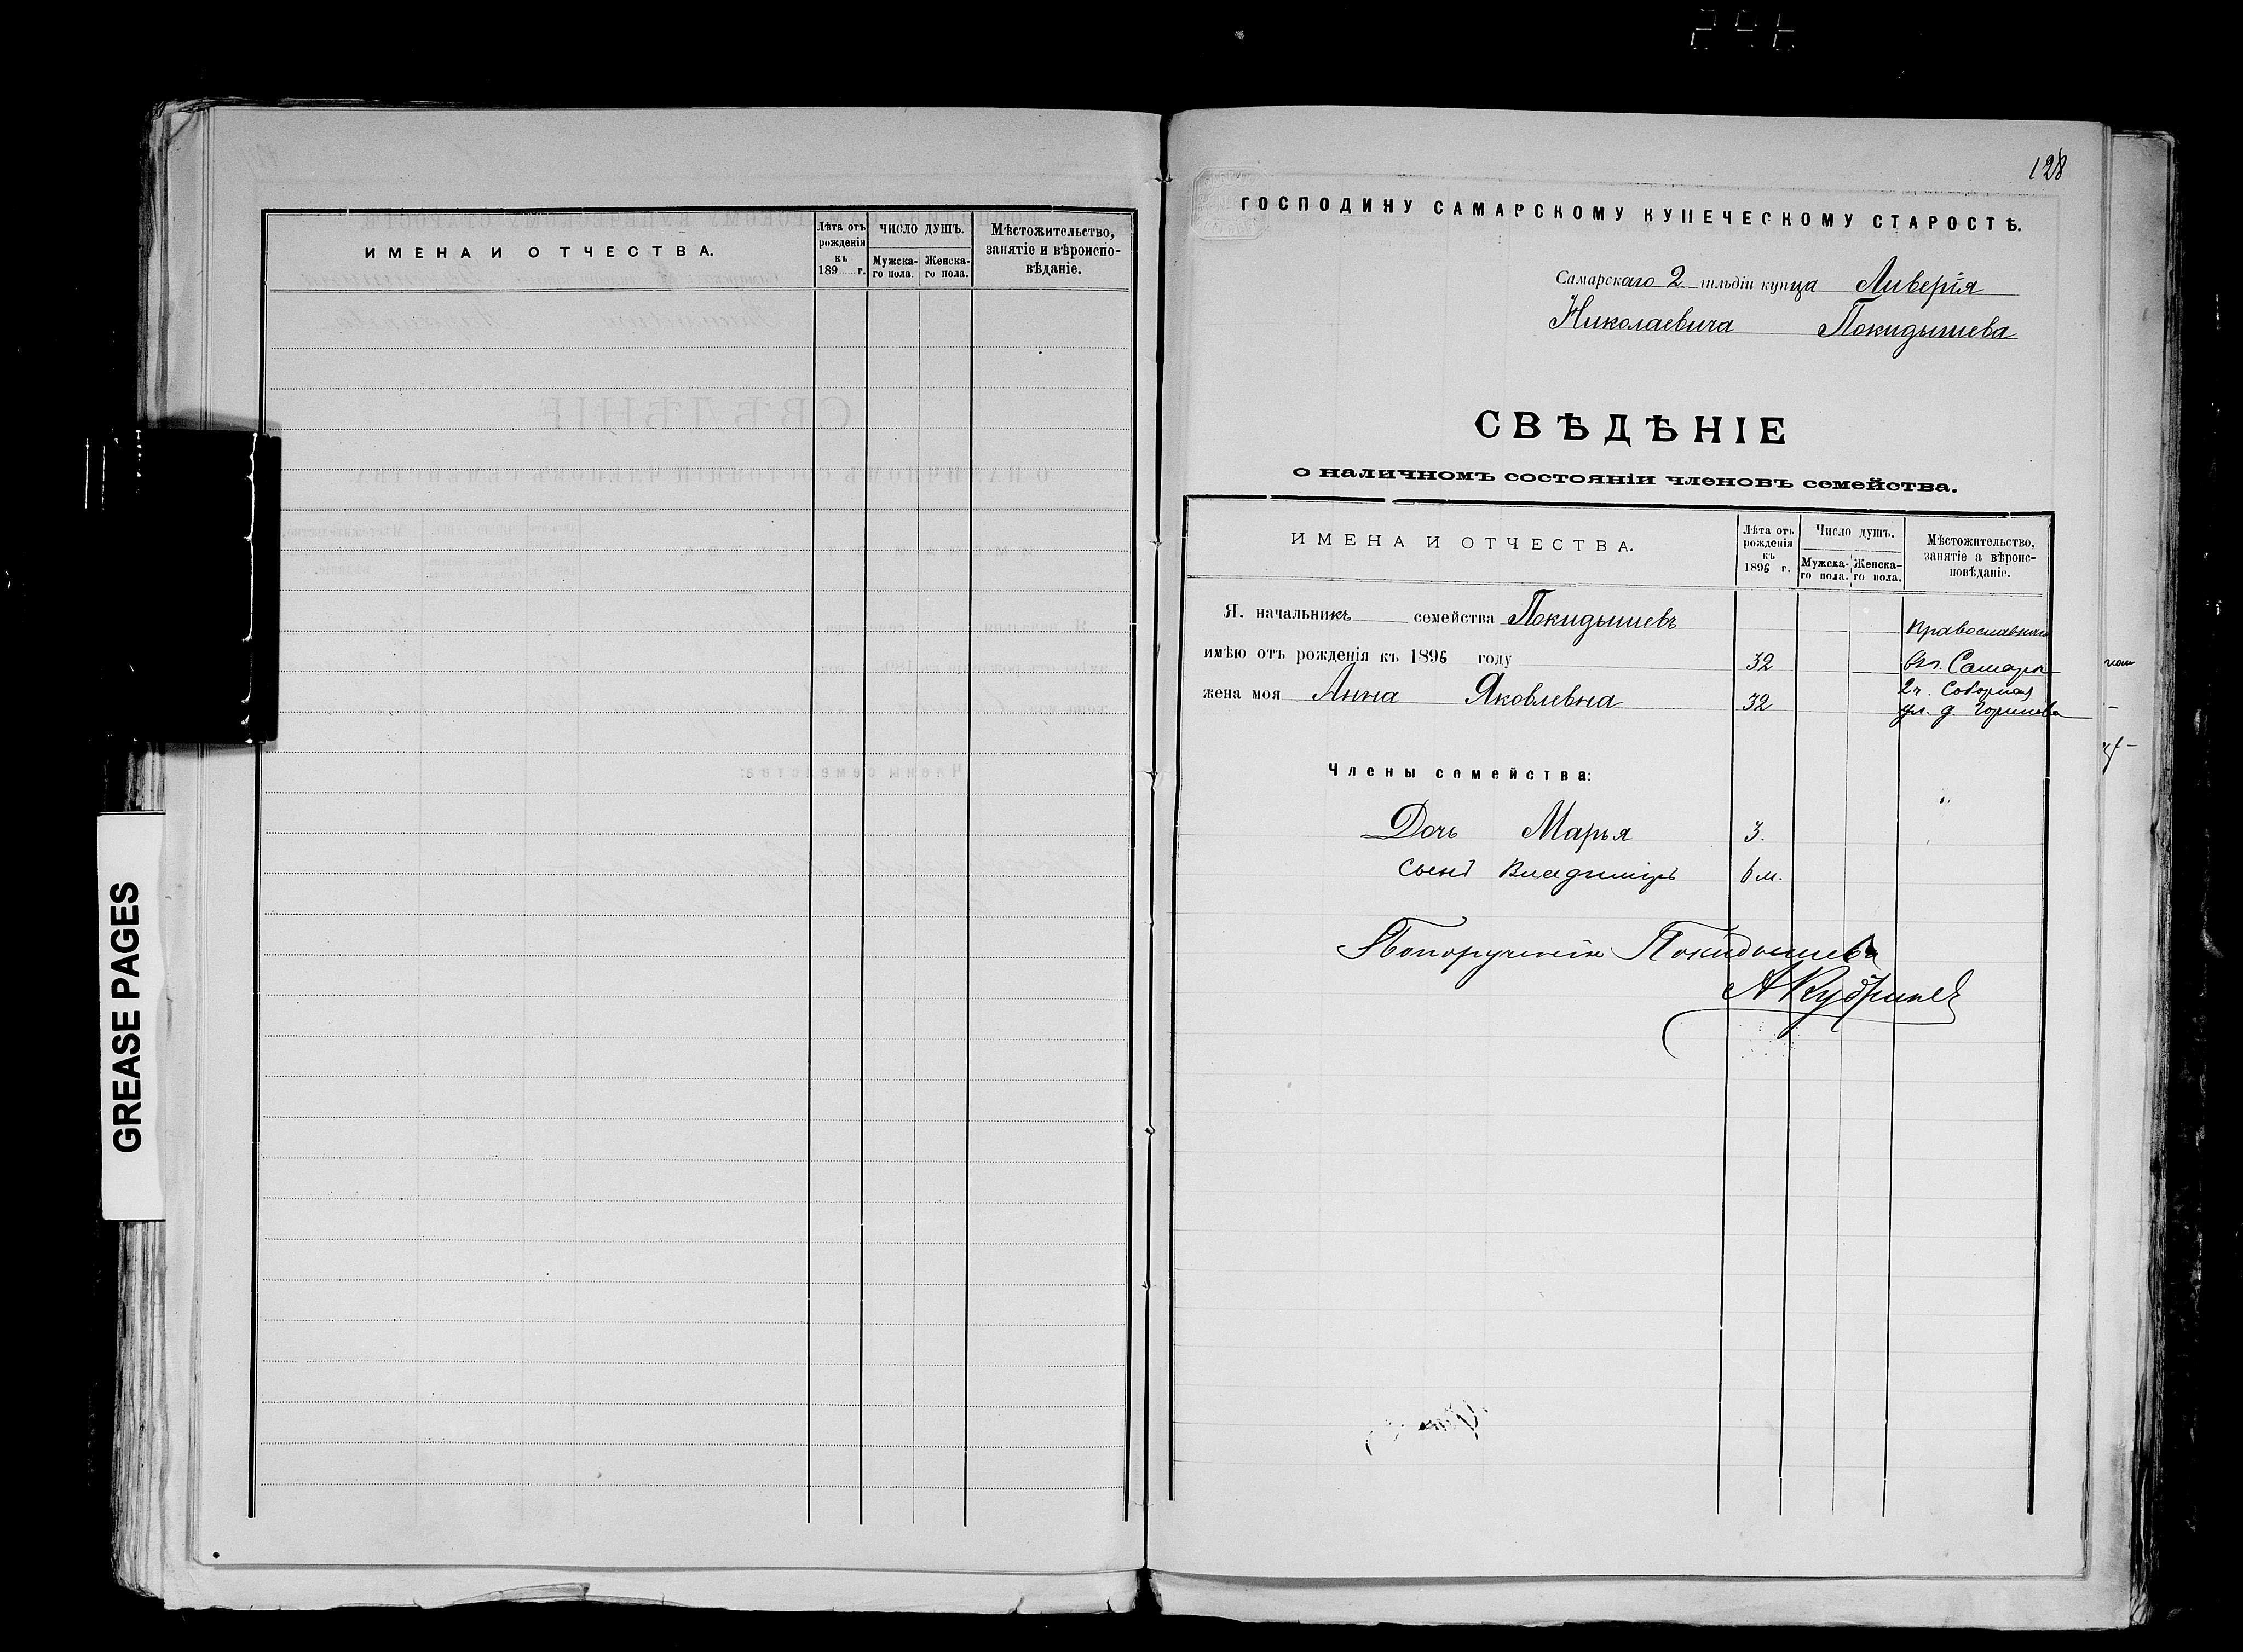 ИМЕНА И ОТЧЕСТВА.
Лѣта отъ рожденія къ 189 г.
ЧИСЛО ДУШЪ.
Мужска-го пола.
Женска-го пола.
Мѣстожительство,
занятіе и вѣроиспо-
вѣданіе.
GREASE PAGES
128
ГОСПОДИНУ САМАРСКОМУ КУПЕЧЕСКОМУ СТАРОСТѢ.
Самарскаго 2 гильдіи купца Ливерія
Николаевича Покидышева
СВѢДѢНІЕ
о наличномъ состояніи членовъ семейства.
ИМЕНА И ОТЧЕСТВА.
Лѣта отъ рожденія къ 1896 г.
Число душъ.
Мужска-го пола.
Женска-го пола.
Мѣстожительство,
занятіе а вѣроис-
повѣданіе.
Я. начальникъ семейства Покидышевъ
имѣю отъ рожденія къ 1896 году 32
жена моя Анна Яковлевна 32
Православнаго
въ г. Самарѣ
2 ч. Соборная
ул. д.
Члены семейства:
Дочь Марья 3.
сынъ Владиміръ 6 м.
По порученію Покидышева
А Кудрин